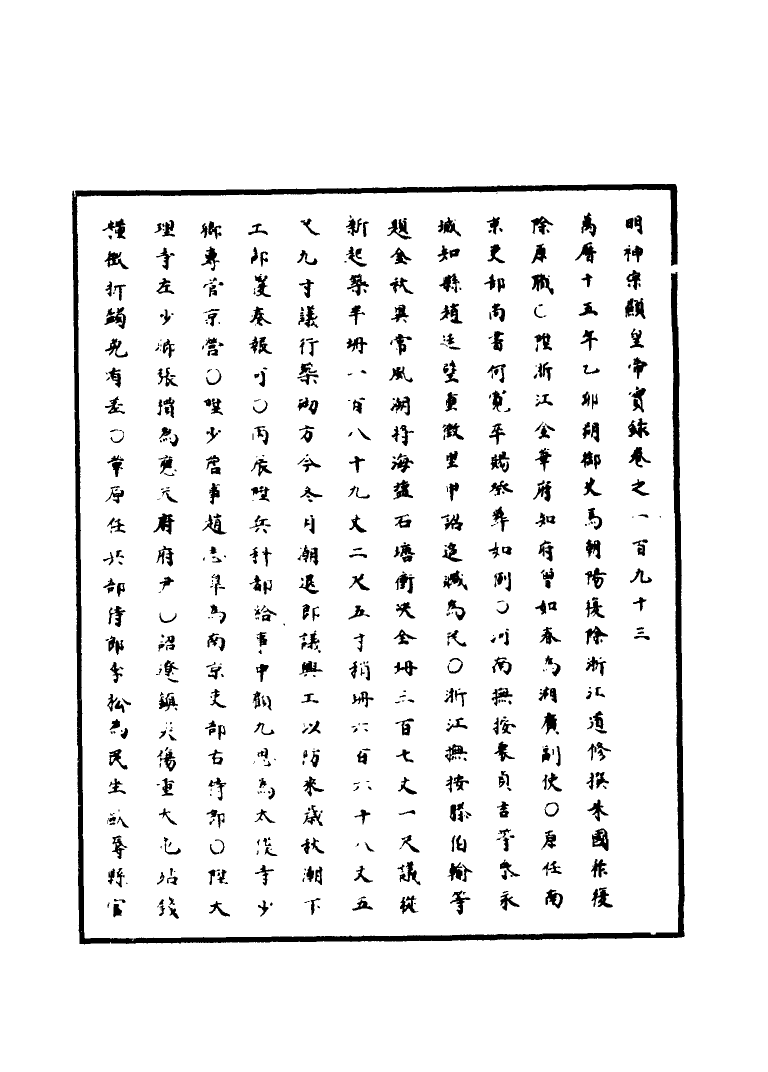 明神宗顯皇帝實録卷之一百九十三
萬曆十五年乙卯朔御史馬朝陽復除浙江道修撰朱國祚復
除原職○陞浙江金華府知府曾如春為湖廣副使○原任南
京吏部尚書何寬卒賜祭葬如例○河南撫按衷貞吉等叅永
城知縣趙廷璧重徵里甲詔追贓為民○浙江撫按滕伯輪等
題今秋異常風潮將海鹽石塘衝決全坍三百七丈一尺議從
新起築半坍一百八十九丈二尺五寸稍坍六百六十八丈五
尺九寸議行築砌方今冬月潮退即議興工以防來歲秋潮下
工部覆奏報可○丙辰陞兵科都給事中顧九思為太僕寺少
卿專管京營○陞少詹事趙志皋為南京吏部右侍郎○陞大
理寺左少卿張檟為應天府府尹○詔遼鎮災傷重大屯站錢
糧徵折蠲免有差○革原任兵部侍郎李松為民生 辱縣官